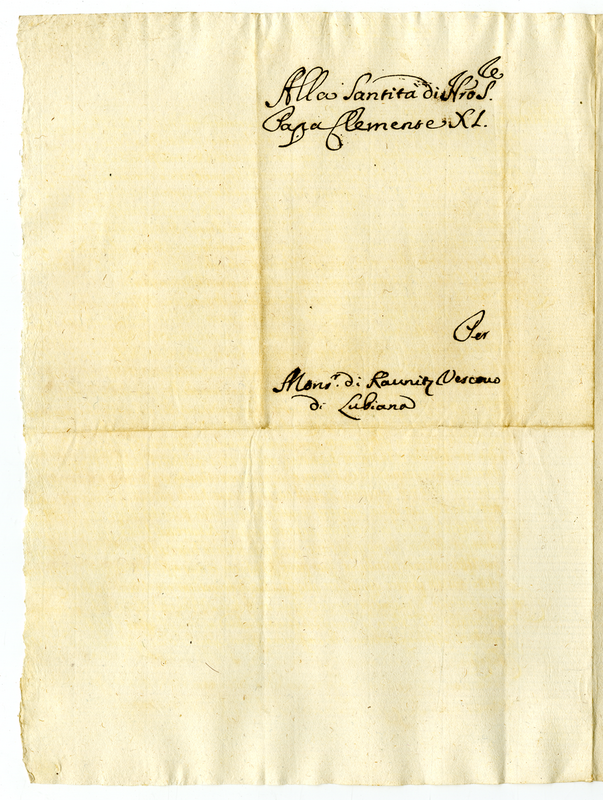 Alla Santità di Nro S.re
Papa Clemente XI.
Per
Mons.r di Kaunitz Vescovo
di Lubiana